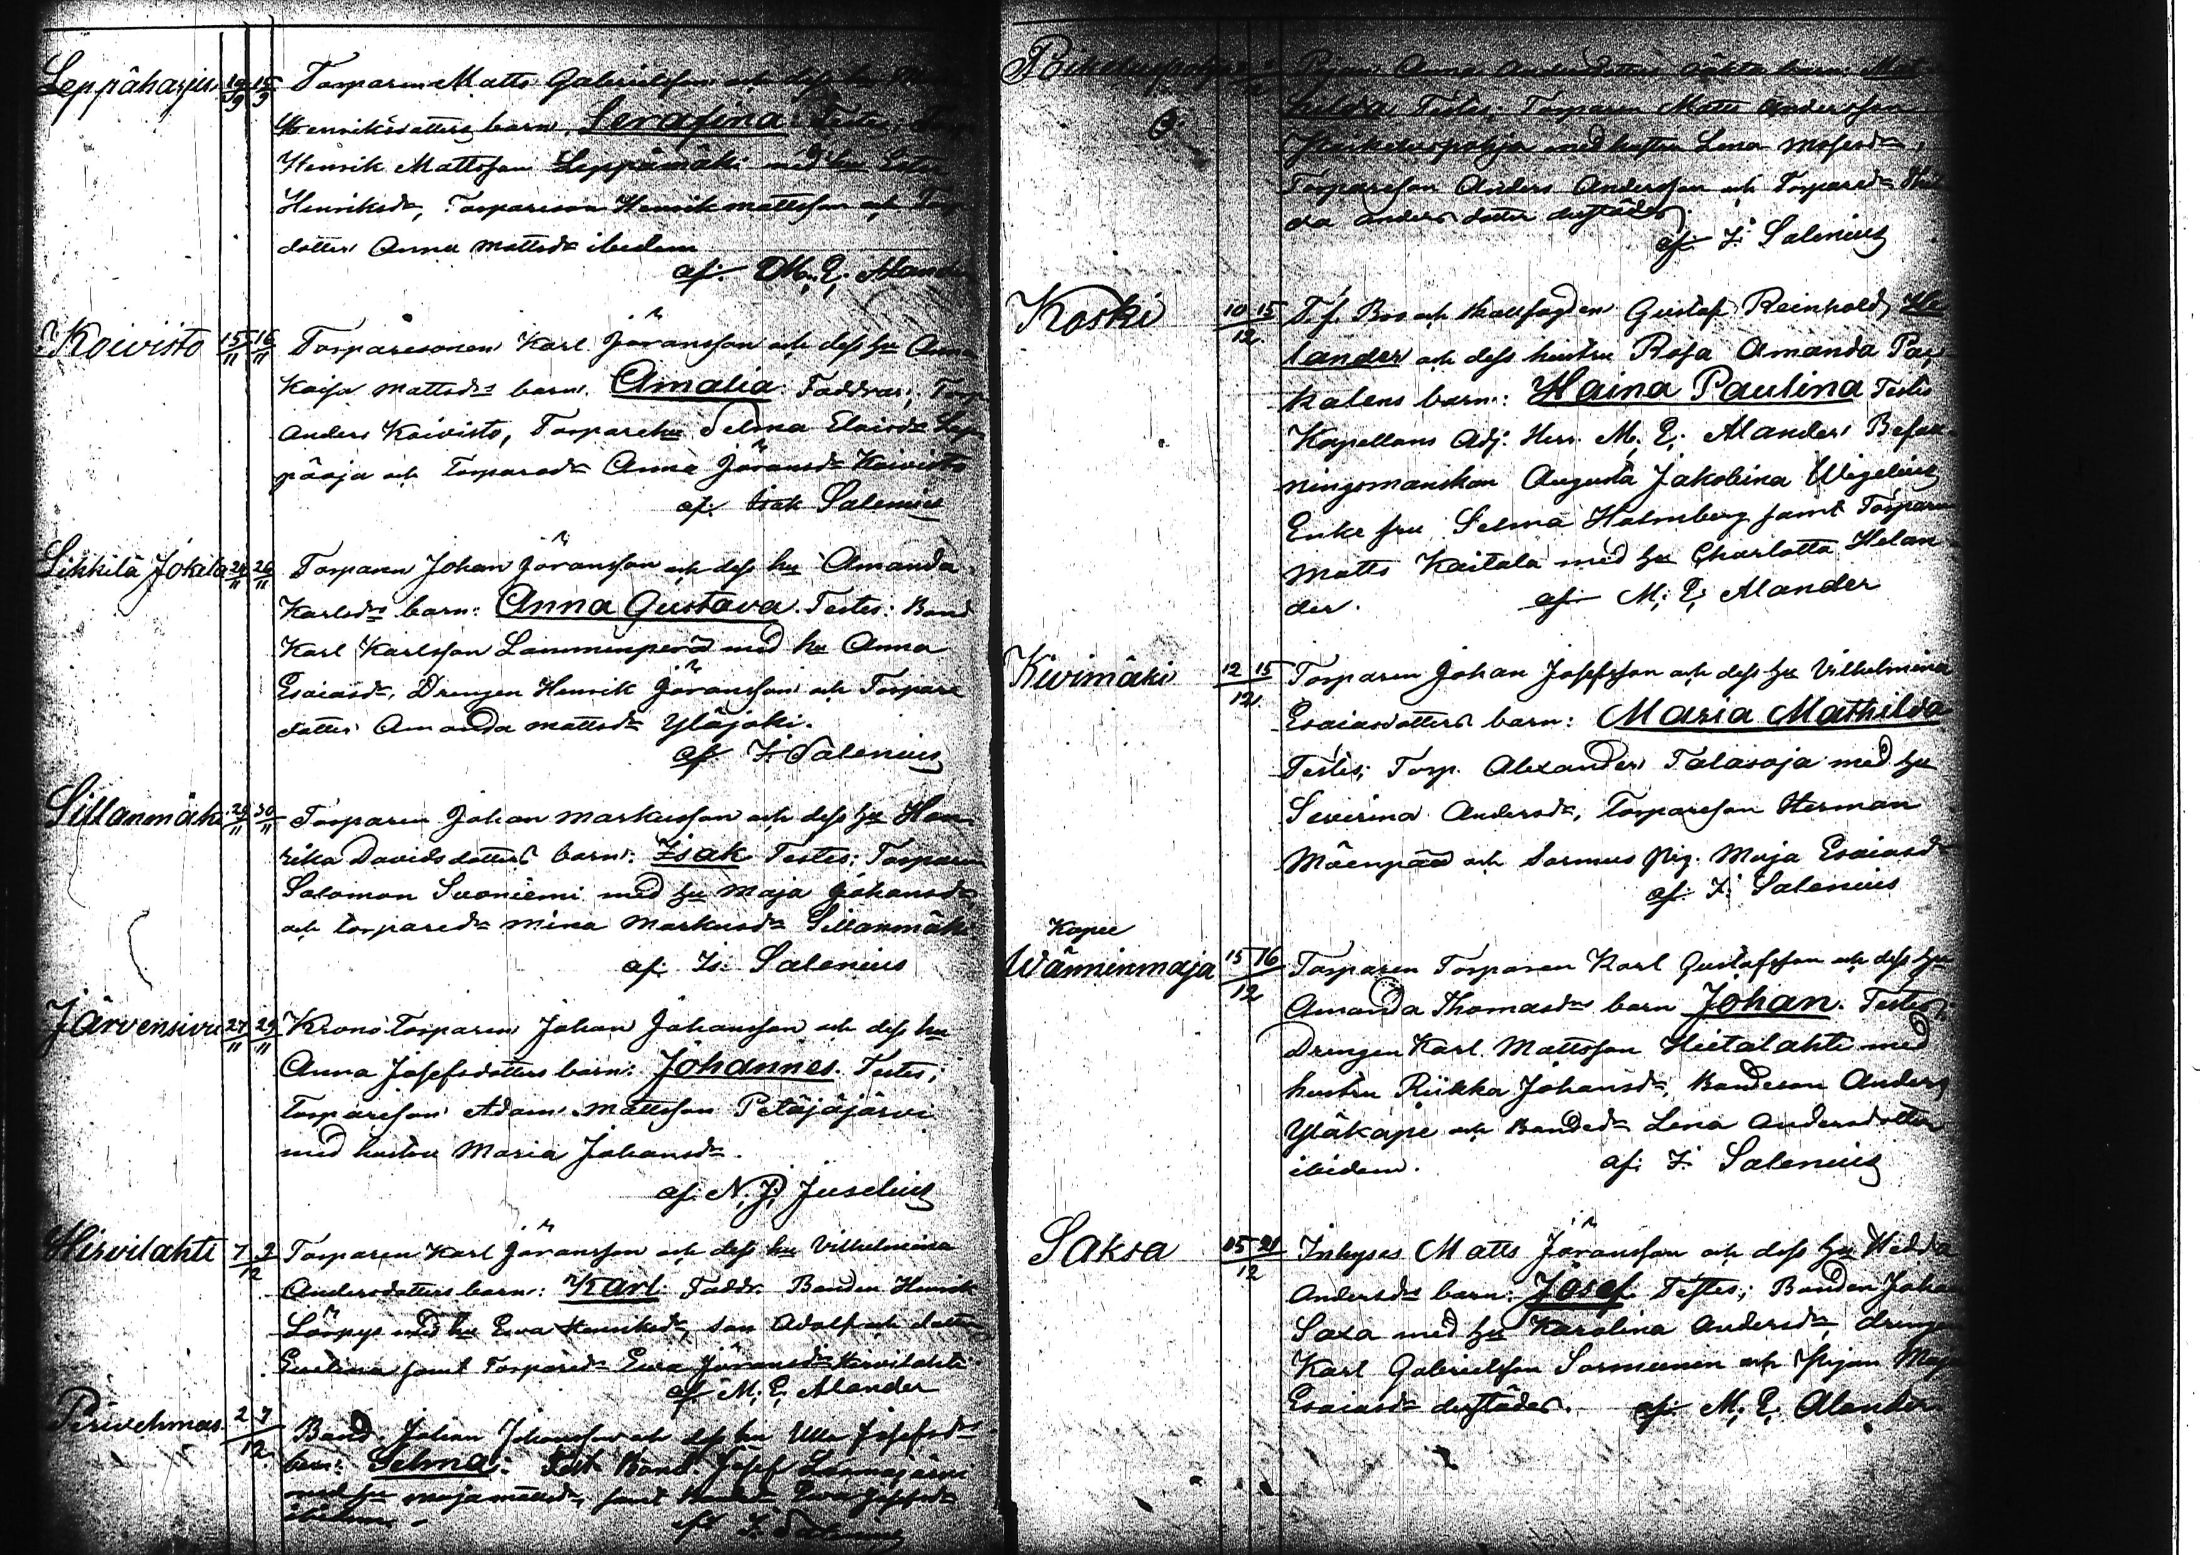 Leppäharju 12/9 15/9 Torparen Matts Gabrielsson och dess hu
Henriksdotters barn. Serafina. Testes: Torp
Henrik Mattsson Leppämäki med hu
Henriksdr, Torpareson Henrik mattsson och Torp
dotter Anna mattsdr ibidem
af. M. E. Alander
Koivisto 15/11 16/11 Torparesonen Karl Göransson och dess hu Anna
Kaisa mattsdrs barn. Amalia. Faddrar; Torp
Anders Koivisto, Torparehu Selma
och Torparedr Anna Göransdr Koivisto
af. Isak Salenius
Likkilä Jokela 24/11 26/11 Torparen Johan Göransson och dess hu Amanda
Karlsdrs barn: Anna Gustava. Testes: Bond
Karl Karlsson Lamminperä med hu Anna
Esaiasdr, Drengen Henrik Göransson och Torpare
dotter Amanda mattsdr Yläjoki.
af I. Salenius
Sillanmäki 28/11 30/11 Torparen Johan markusson och dess hu Hen
rika Davidsdotters barn: Isak Testes: Torparen
Salomon Suoniemi med hu Maja Johansdr,
och torparedr mina markusdr Sillanmäki
af. Is. Salenius
Järvensivu 27/11 29/11 Krono Torparen Johan Johansson och dess hu
Anna Josefsdotters barn: Johannes. Testes;
Torpareson Adam Mattsson Petäjäjärvi
med hustru Maria Johansdr.
af. N. J. Juselius
Hirvilahti 7 9/12 Torparen Karl Göransson och dess hu Vilhelmina
Andersdotters barn: Karl. Faddr. Bonden Henrik
Löspys med hu Ewa Henriksdr, son Adolf och dotter
Ewelina samt Torparedr Ewa Göransdr Hirvilahti
af M. E. Alander
2 7/12 Bond. Johan Johansson och dess hu Ulla Josefsdrs
barn: Selma: Test Bond. Josef
med hu maja mattsdr, samt Ewa Josefsdr
ibidem.
af I. Salenius
Pigan Anna Andersdotters oäkta barn: Mat
hilda Testes; Torparen Matts Andersson
med hustru Lena Mosesdr,
Torpareson Anders Andersson och Torparedr
da anders dotter derstädes
af I. Salenius
Koski 10 15/12 T. f. Bro och Gustaf Reinhold He
lander och dess hustru Rosa Amanda Pas
kalens barn: Haina Paulina Testes
Kapellans Adj. Herr M. E. Alander Befall
ningsmanskan Augusta Jakobina Wigelius
Enke fru Selma Holmberg samt Torparen
Matts Kaitala med hu Charlotta Helan
der. af M. E. Alander
Kivimäki 12 15/12 Torparen Johan Josefsson och dess hu Vilhelmina
Esaiasdotters barn: Maria Mathilda
Testes; Torp. Alexander Talasoja med hu
Severina Andersdr, Torpareson Herman
Mäenpää och Sormus pig. Maja Esaiasdr
af. I. Salenius
Kapee
Wänninmaja 15 16/12 Torparen Torparen Karl Gustafsson och dess hu
Amanda Thomasdrs barn Johan. Testes;
Drengen Karl Mattsson Hietalahti med
hustru Riikka Johansdr, Bondeson Anders
Yläkäpe och Bondedr Lena Andersdotter
ibidem. af: I. Salenius
Saksa 15 21/12 Inhyses Matts Göransson och dess hu Hedda
Andersdrs barn: Josef. Testes; Bonden Johan
Saxa med hu Karolina Andersdr, drengen
Karl Gabrielsson Sormunen och Pigan Maja
Esaiasdr derstädes. af. M. E. Alander